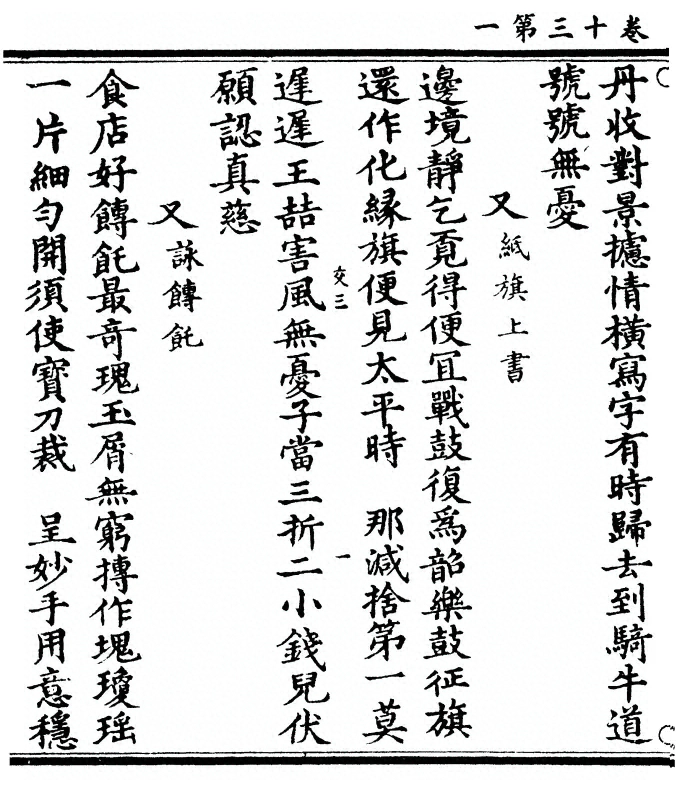 卷十三第一
丹收對景攄情橫寫字有時歸去到騎牛道
號號無憂
又紙旗上書
邊境靜乞覔得便冝戰鼓復爲韶樂鼓征旗
還作化緣旗便見太平時　那減捨第一莫
交三　一
遲遲王喆害風無憂子當三折二小錢兒伏
願認真慈
又詠餺飥
食店好餺飥最奇瑰玉屑無窮摶作塊瓊瑶
一片細匀開須使寶刀裁　呈妙手用意穩